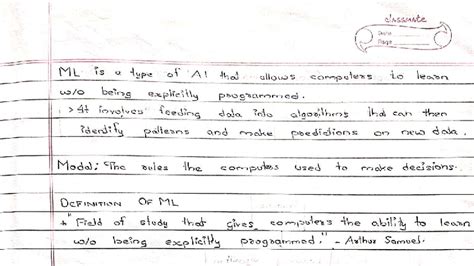 classmate
Date
Page
ML is a type of AI that allows computers to learn
w/o being explicitly programmed.
> It involves feeding data into algorithms that can then
identify patterns and make predictions on new data.
Model: The rules the computers used to make decisions.
DEFINITION OF ML
"Field of study that gives computers the ability to learn
w/o being explicitly programmed." - Arthur Samuel